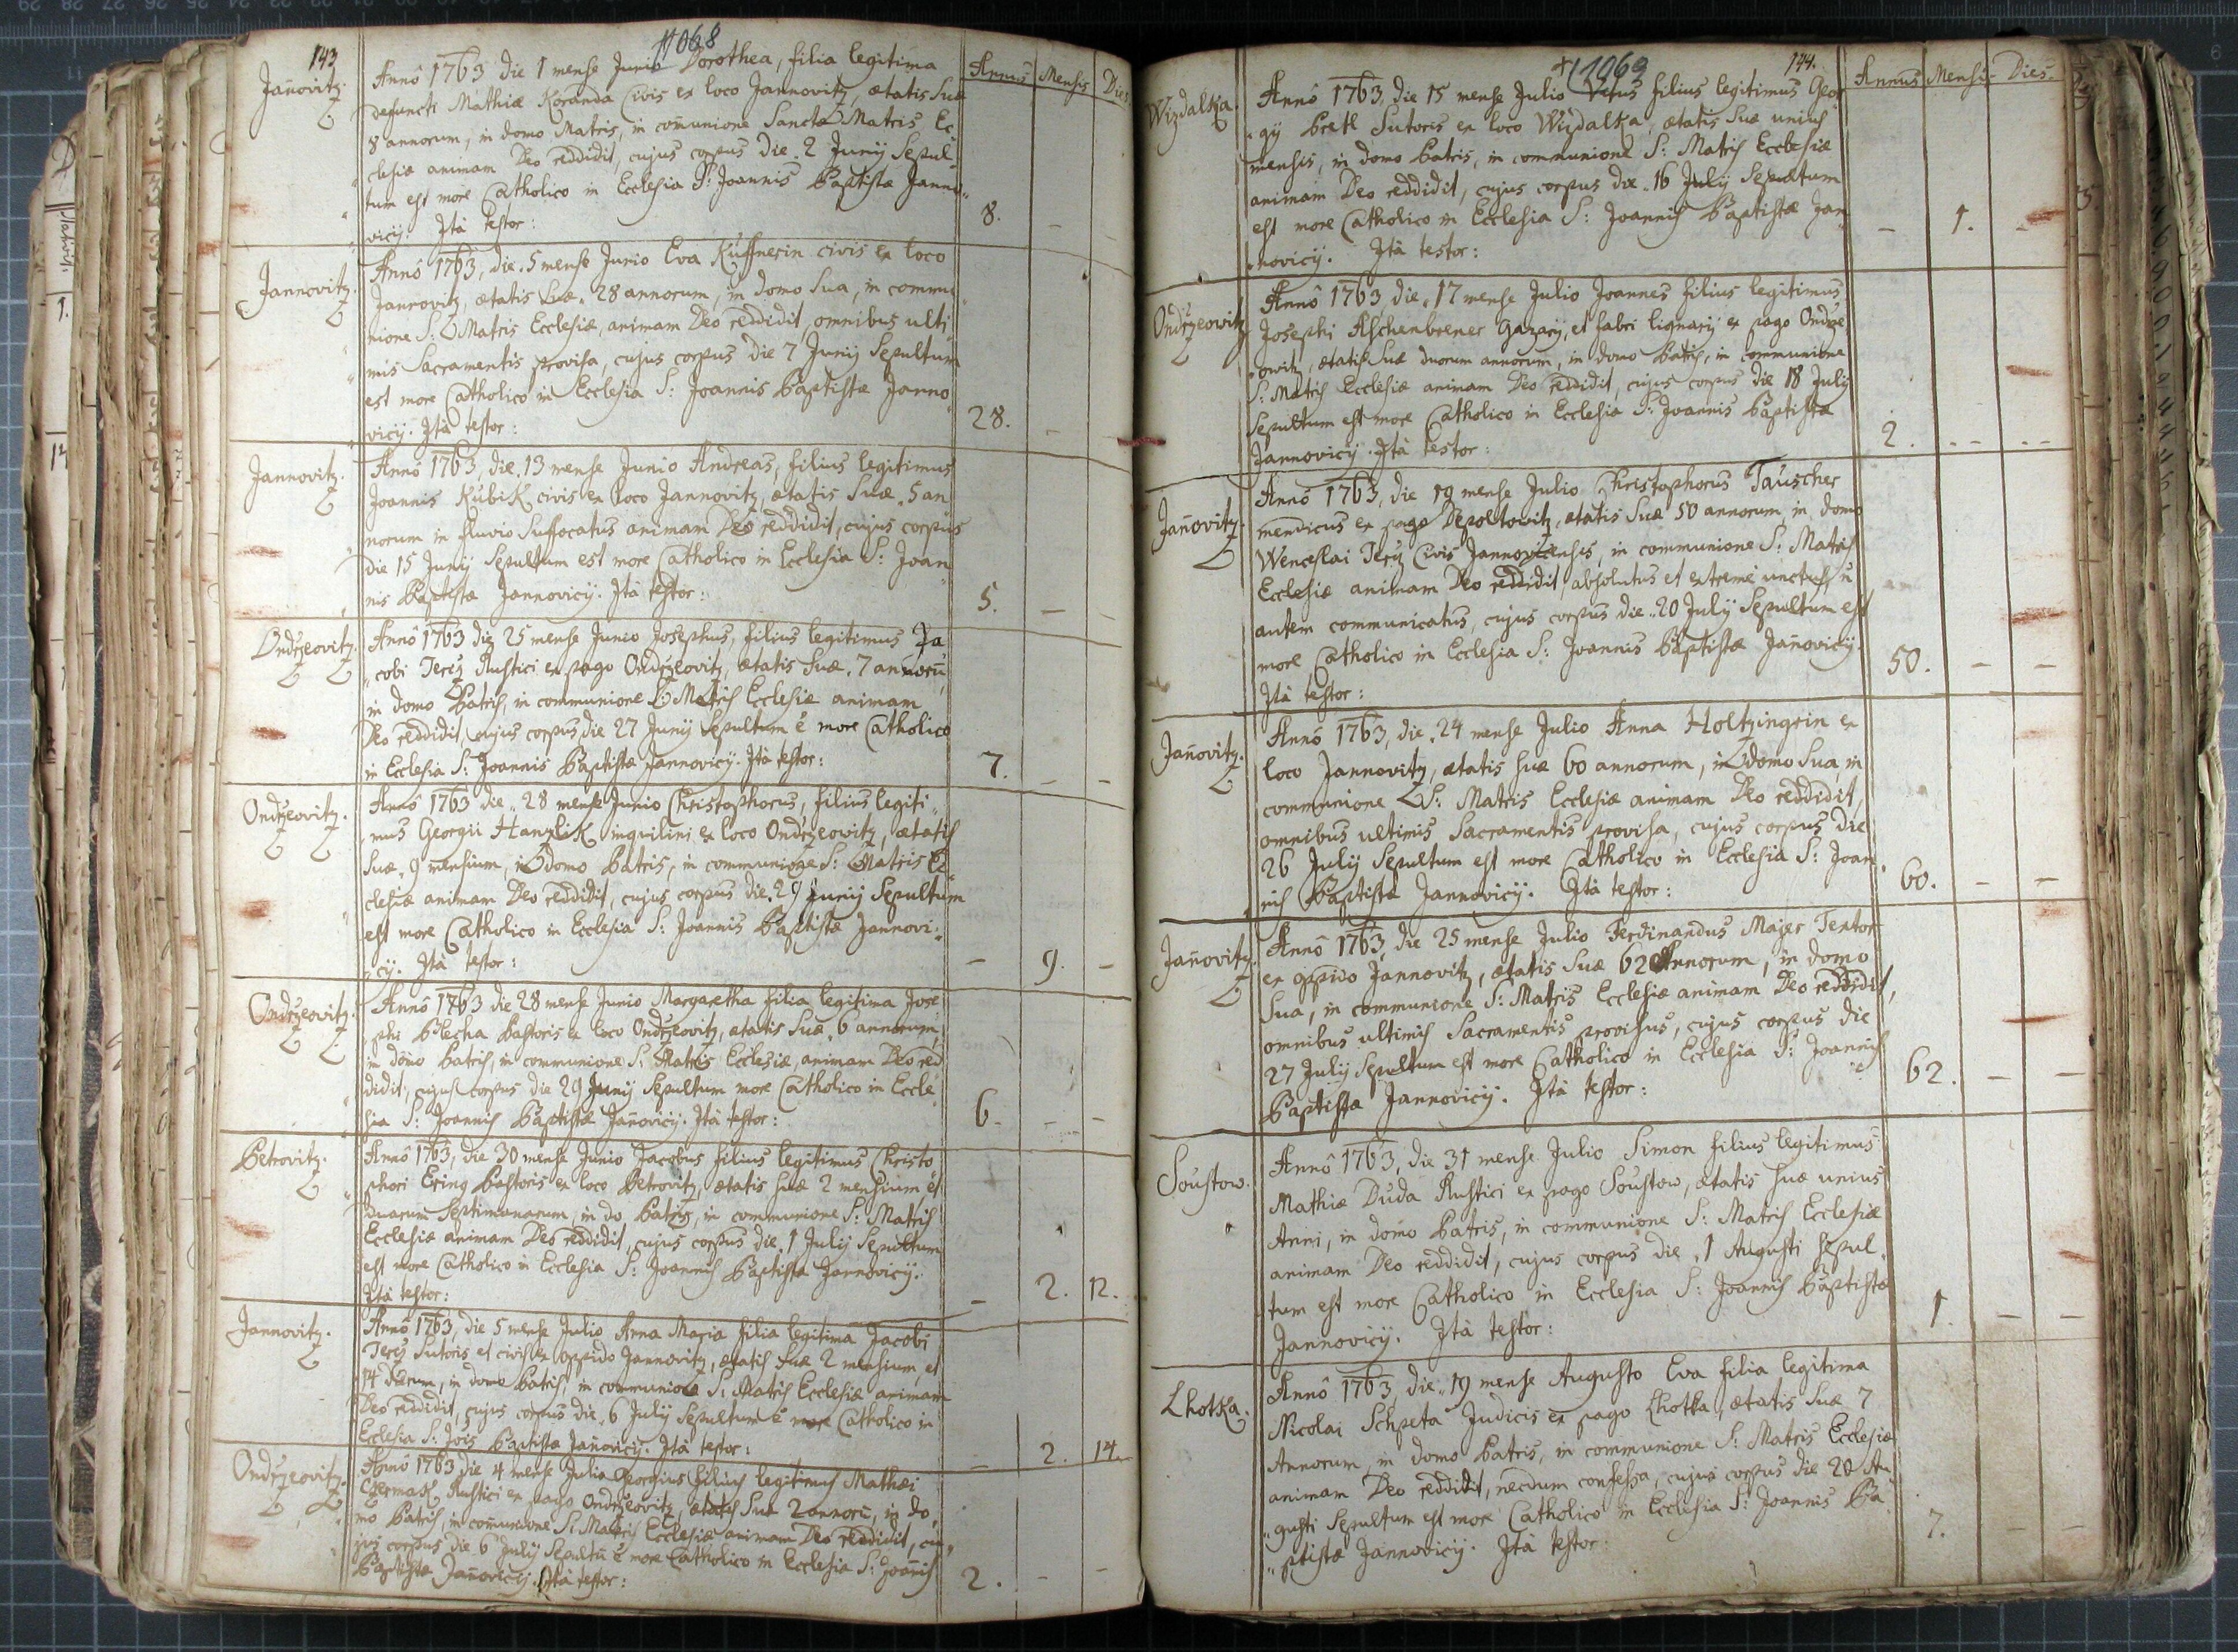 143
11068
Annus Mensis Dies
Jan̄ovitz.
Annô 1763 die 1 mense Junio Dorothea, filia legitima
defuncti Mathiæ Koranda Civis ex loco Jannovitz, ætatis suæ
8 annorum, in domo Matris, in com̄unione Sanctæ Matris Ec„
„clesiæ animam Deo reddidit, cujus corpus die 2 Junij Sepul„
„tum est more Catholico in Ecclesia S: Joannis Baptistæ Janno„
„vicij. Ità testor:
8. – –
Jannovitz.
Annô 1763, die 5 mense Junio Eva Küffnerin civis ex loco
Jannovitz, ætatis suæ 28 annorum, in domo Sua, in commu„
„nione S: Matris Ecclesiæ, animam Deo reddidit, omnibus ulti„
„mis Sacramentis provisa, cujus corpus die 7 Junij Sepultum
est more Catholico in Ecclesia S: Joannis Baptistæ Janno„
„vicij. Ità testor:
28. –
Jannovitz.
Annô 1763, die 13 mense Junio Andreas, filius legitimus
Joannis Kubik civis ex loco Jannovitz, ætatis Suæ 5 an„
„norum in fluvio Suffocatus animam Deo reddidit, cujus corpus
die 15 Junij Sepultum est more Catholico in Ecclesia S: Joan„
„nis Baptistæ Jannovicij. Ità testor:
5. – –
Ondrzeovitz.
Annô 1763 die 25 mense Junio Josephus, filius legitimus Ja„
„cobi Terez Rustici ex pago Ondrzeovitz, ætatis Suæ 7 annorū,
in domo Patris, in communione S: Matris Ecclesiæ animam
Deo reddidit, cujus corpus die 27 Junij Sepultum ē more Catholico
in Ecclesia S: Joannis Baptistæ Jannovicij. Ità testor:
7. – –
Ondrzeovitz.
Annô 1763 die 28 mense Junio Christophorus, filius legiti„
„mus Georgii Hanzlik inquilini ex loco Ondrzeowitz, ætatis
Suæ 9 mensium, in domo Patris, in communione S: Matris Ec„
„clesiæ animam Deo reddidit, cujus corpus die 29 Junij Sepultum
est more Catholico in Ecclesia S: Joannis Baptistæ Jannovi„
„cij. Ità testor:
– 9. –
Ondrzeovitz.
Annô 1763 die 28 mense Junio Margaretha filia legitima Jose„
„phi Blecha Pastoris ex loco Ondrzeovitz, ætatis Suæ 6 annorum,
in domo Patris, in communione S: Matris Ecclesiæ, animam Deo red„
„didit, cujus corpus die 29 Junij Sepultum more Catholico in Eccle„
„sia S: Joannis Baptistæ Jan̄ovicij. Ità testor:
6. – –
Petrovitz.
Annô 1763, die 30 mense Junio Jacobus filius legitimus Christo„
„phori Ering Pastoris ex loco Petrovitz, ætatis suæ 2 mensium et
duarum Septimanarum, in do Patris, in communione S: Matris
Ecclesiæ animam Deo reddidit, cujus corpus die 1 Julij Sepultum
est more Catholico in Ecclesia S: Joannis Baptistæ Jannovicij.
Ità testor:
– 2. 12.
Jannovitz.
Annô 1763, die 5 mense Julio Anna Maria filia legitima Jacobi
Terez Sutoris et civis ex oppido Jannovitz, ætatis Suæ 2 mensium, et
14 dierum, in domo Patris, in communione S: Matris Ecclesiæ animam
Deo reddidit, cujus corpus die 6 Julij Sepultum ē more Catholico in
Ecclesia S: Jois Baptistæ Jan̄ovicij. Ità testor:
– 2. 14.
Ondrzeovitz.
Annô 1763 die 4 mense Julio Georgius filius legitimus Mathæi
Czermak Rustici ex pago Ondrzeovitz, ætatis Suæ 2 annorū, in do„
„mo Patris, in com̄unione S: Matris Ecclesiæ animam Deo reddidit, cu„
„jus corpus die 6 Julij Sepultū ē more Catholico in Ecclesia S: Joan̄is
Baptistæ Jan̄ovicij. Ità testor:
2. – –
11069
144.
Annus Mensis Dies.
Wizdalka.
Annô 1763, die 15 mense Julio Vitus filius legitimus Geor„
„gij Bretl Sutoris ex loco Wizdalka, ætatis Suæ unius
mensis, in domo Patris, in communione S: Matris Ecclesiæ
animam Deo reddidit, cujus corpus die 16 July Sepultum
est more Catholico in Ecclesia S: Joannis Baptistæ Jan„
„novicij. Ità testor:
– 1. –
Ondrzeowitz
Annô 1763 die 17 mense Julio Joannes filius legitimus
Josephi Aschenbrener Gazarij, et fabri lignarij ex pago Ondrze„
„owitz, ætatis Suæ duorum annorum, in domo Patris, in communione
S: Matris Ecclesiæ animam Deo reddidit, cujus corpus die 18 Julij
Sepultum est more Catholico in Ecclesia S: Joannis Baptistæ
Jannovicij. Ità testor:
2. -- --
Jan̄ovitz.
Annô 1763, die 19 mense Julio Christophorus Tauscher
mendicus ex pago Depoltowitz, ætatis Suæ 50 annorum in domo
Wenceslai Terez Civis Jannovicensis, in communione S: Matris
Ecclesiæ animam Deo reddidit, absolutus et extremè unctus, ñ
autem communicatus, cujus corpus die 20 July Sepultum est
more Catholico in Ecclesia S: Joannis Baptistæ Jan̄ovicij.
Ità testor:
50. – –
Jan̄ovitz.
Annô 1763, die 24 mense Julio Anna Holtzingrin ex
loco Jannovitz, ætatis suæ 60 annorum, in domo Sua, in
communione S: Matris Ecclesiæ animam Deo reddidit,
omnibus ultimis Sacramentis provisa, cujus corpus die
26 July Sepultum est more Catholico in Ecclesia S: Joan„
„nis Baptistæ Jannovicij. Ità testor:
60. – –
Jan̄ovitz.
Annô 1763, die 25 mense Julio Ferdinandus Majer Textor
ex oppido Jannovitz, ætatis Suæ 62 Annorum, in domo
Sua, in communione S: Matris Ecclesiæ animam Deo reddidit,
omnibus ultimis Sacramentis provisus, cujus corpus die
27 July Sepultum est more Catholico in Ecclesia S: Joannis
Baptistæ Jannovicij. Ità testor:
62. – –
Soustow.
Annô 1763, die 31 mense Julio Simon filius legitimus
Mathiæ Duda Rustici ex pago Soustow, ætatis suæ unius
Anni, in domo Patris, in communione S: Matris Ecclesiæ
animam Deo reddidit, cujus corpus die 1 Augusti Sepul„
„tum est more Catholico in Ecclesia S: Joannis Baptistæ
Jannovicij. Ità testor:
1. – –
Lhotka.
Annô 1763, die 19 mense Augusto Eva filia legitima
Nicolai Schpeta Judicis ex pago Lhotka, ætatis Suæ 7
Annorum, in domo Patris, in communione S: Matris Ecclesiæ
animam Deo reddidit, necdum confessa, cujus corpus die 20 Au„
„gusti Sepultum est more Catholico in Ecclesia S: Joannis Ba„
„ptistæ Jannovicij. Ità testor:
7. – –